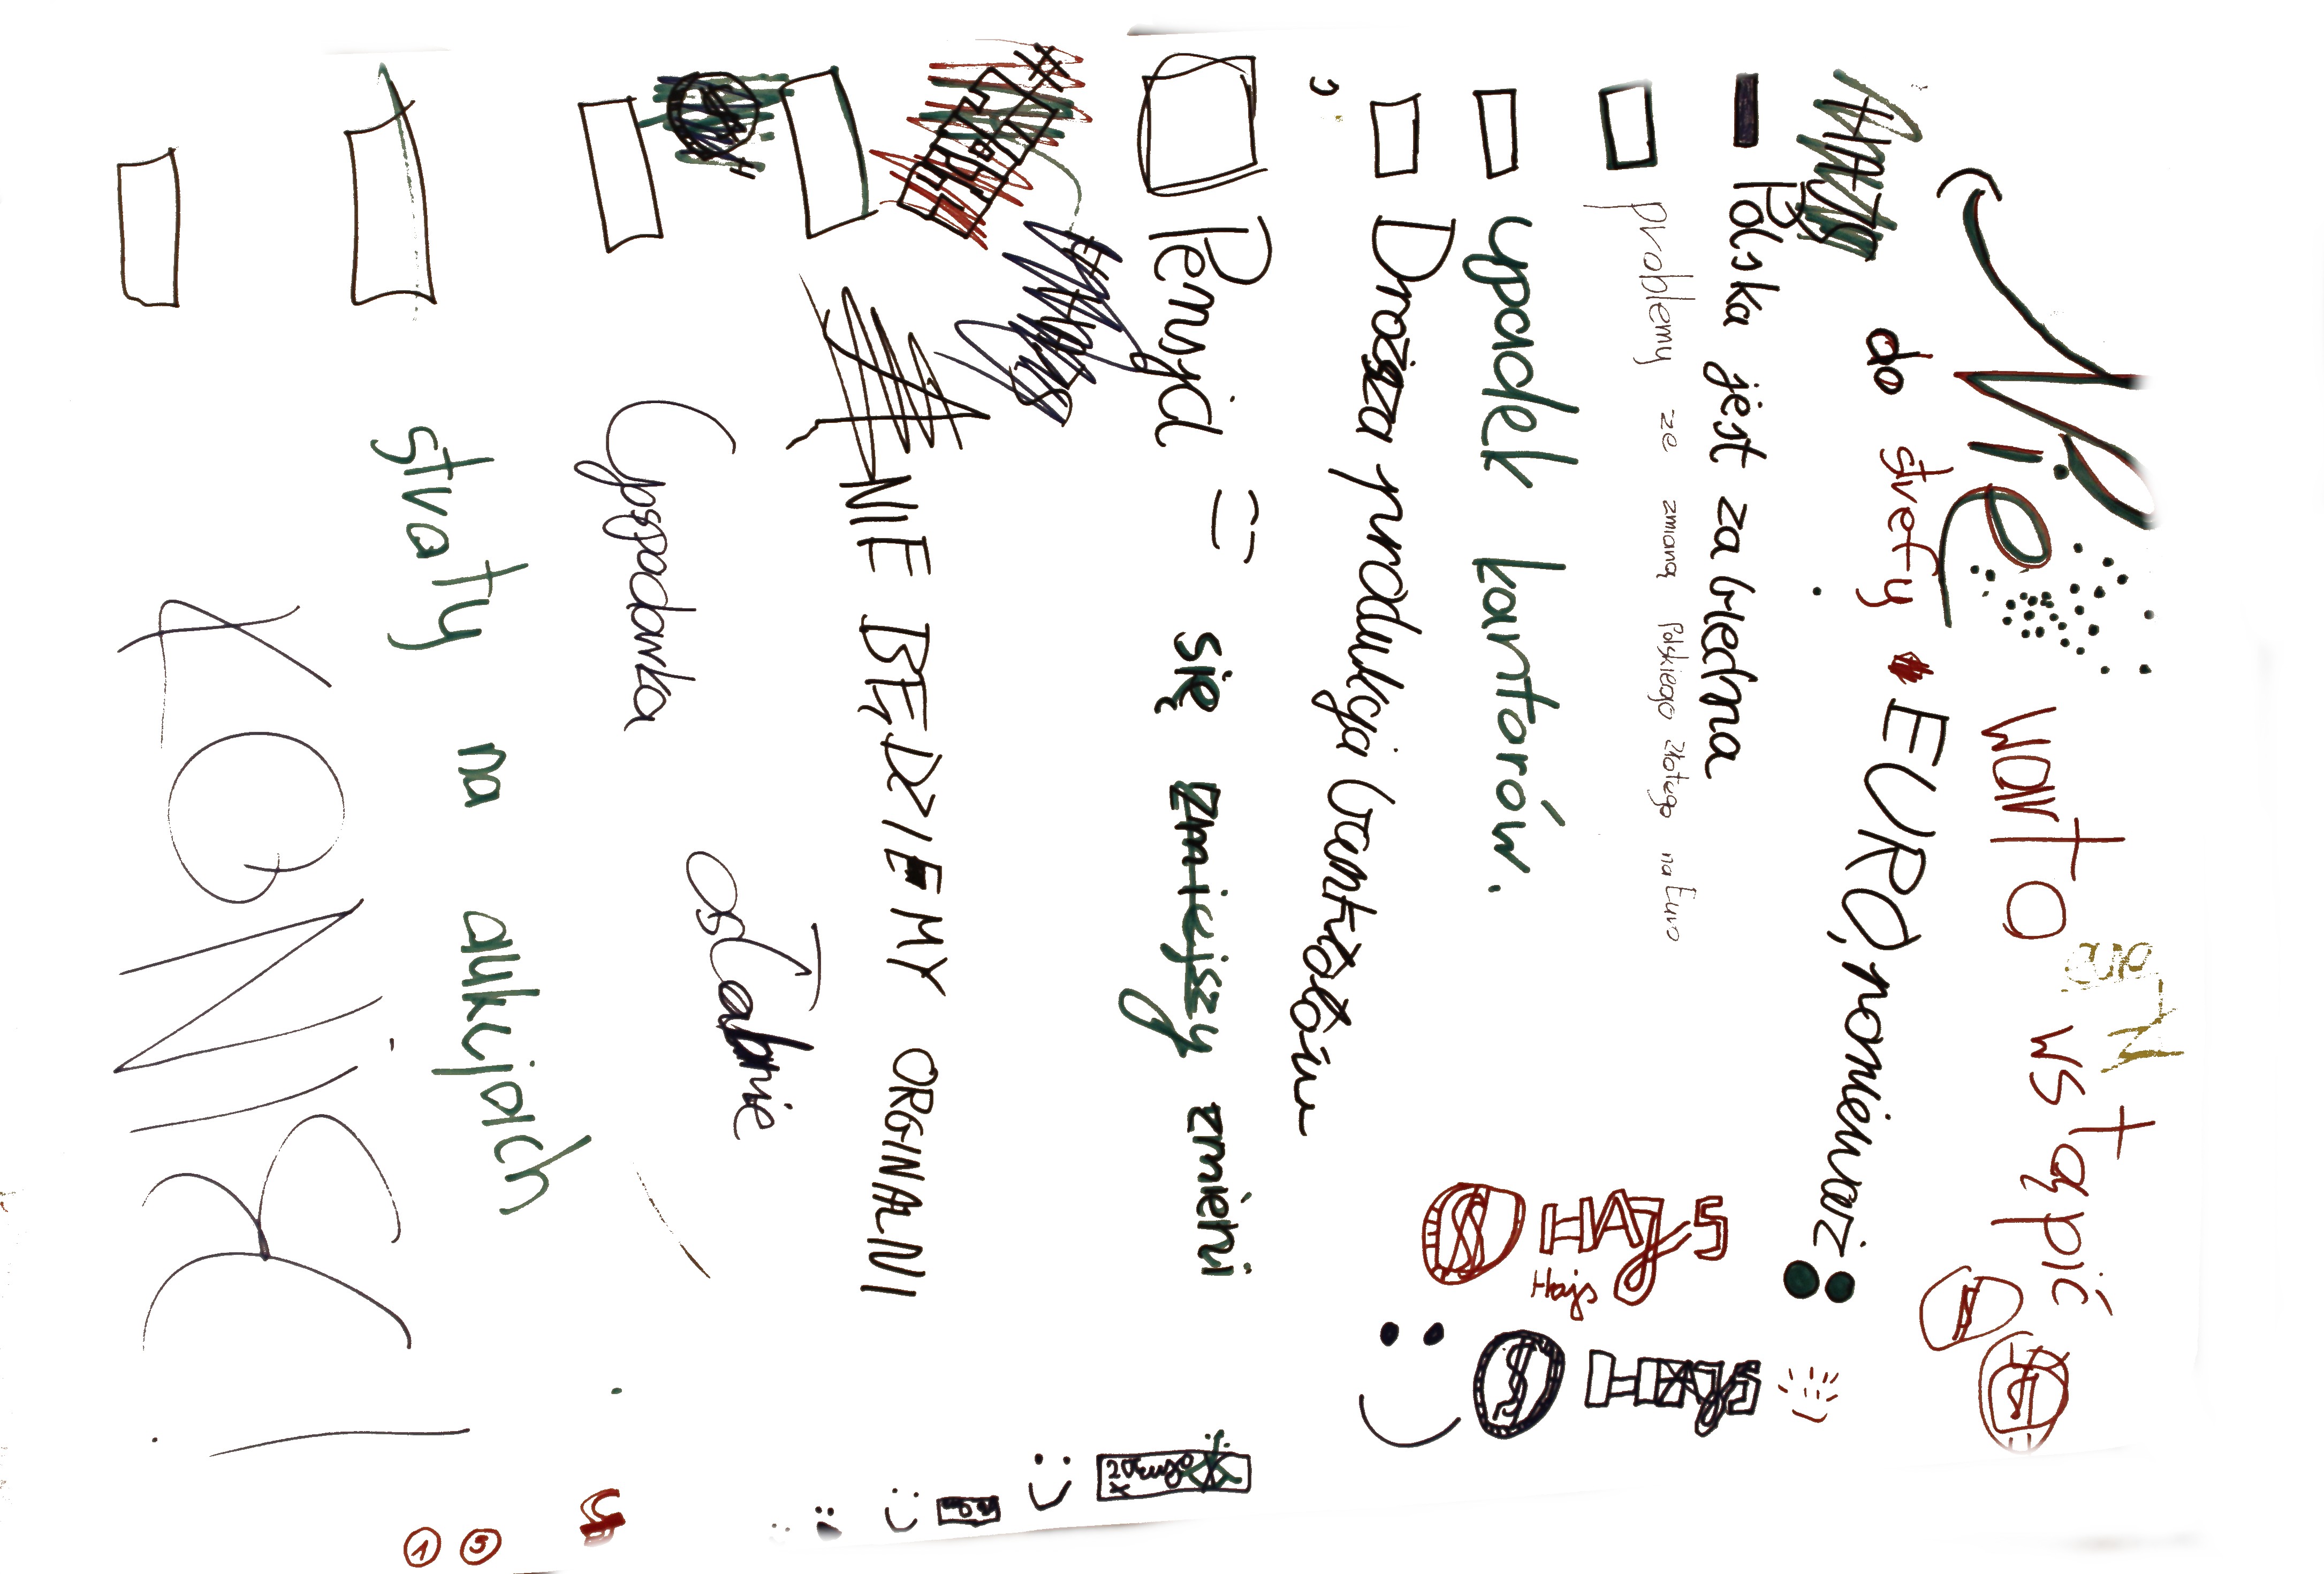 Nie warto wstąpić
do strefy EURO, ponieważ:
Polska jest za biedna
problemy ze zmianą Polskiego złotego na Euro
upadek kantorów.
HAJS
Hajs
HAJS
Droższa produkcja banktotów
Pensja się zmieni
20 Euro
NIE BĘDZIEMY ORGINALNI
Gospodarka osłabnie
straty na aukcjach
KONIEC!